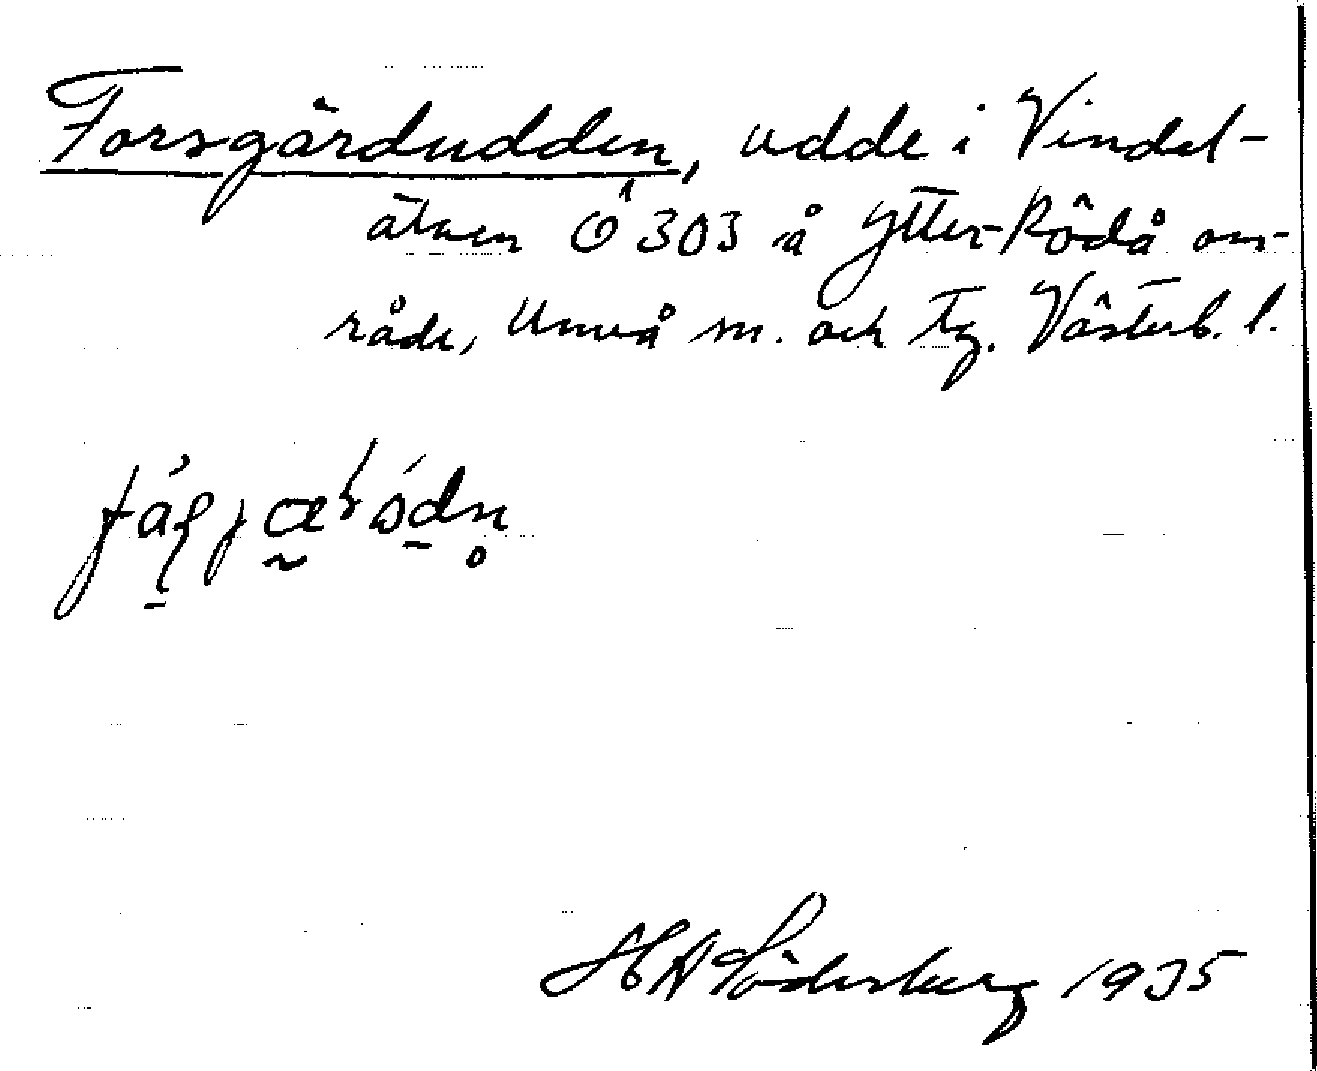 Forsgärdudden, udde i Vindel-
älven Ö 303 å Ytter-Rödå om-
råde, Umeå sn. och tg. Västerb. l.
H A Söderberg 1935